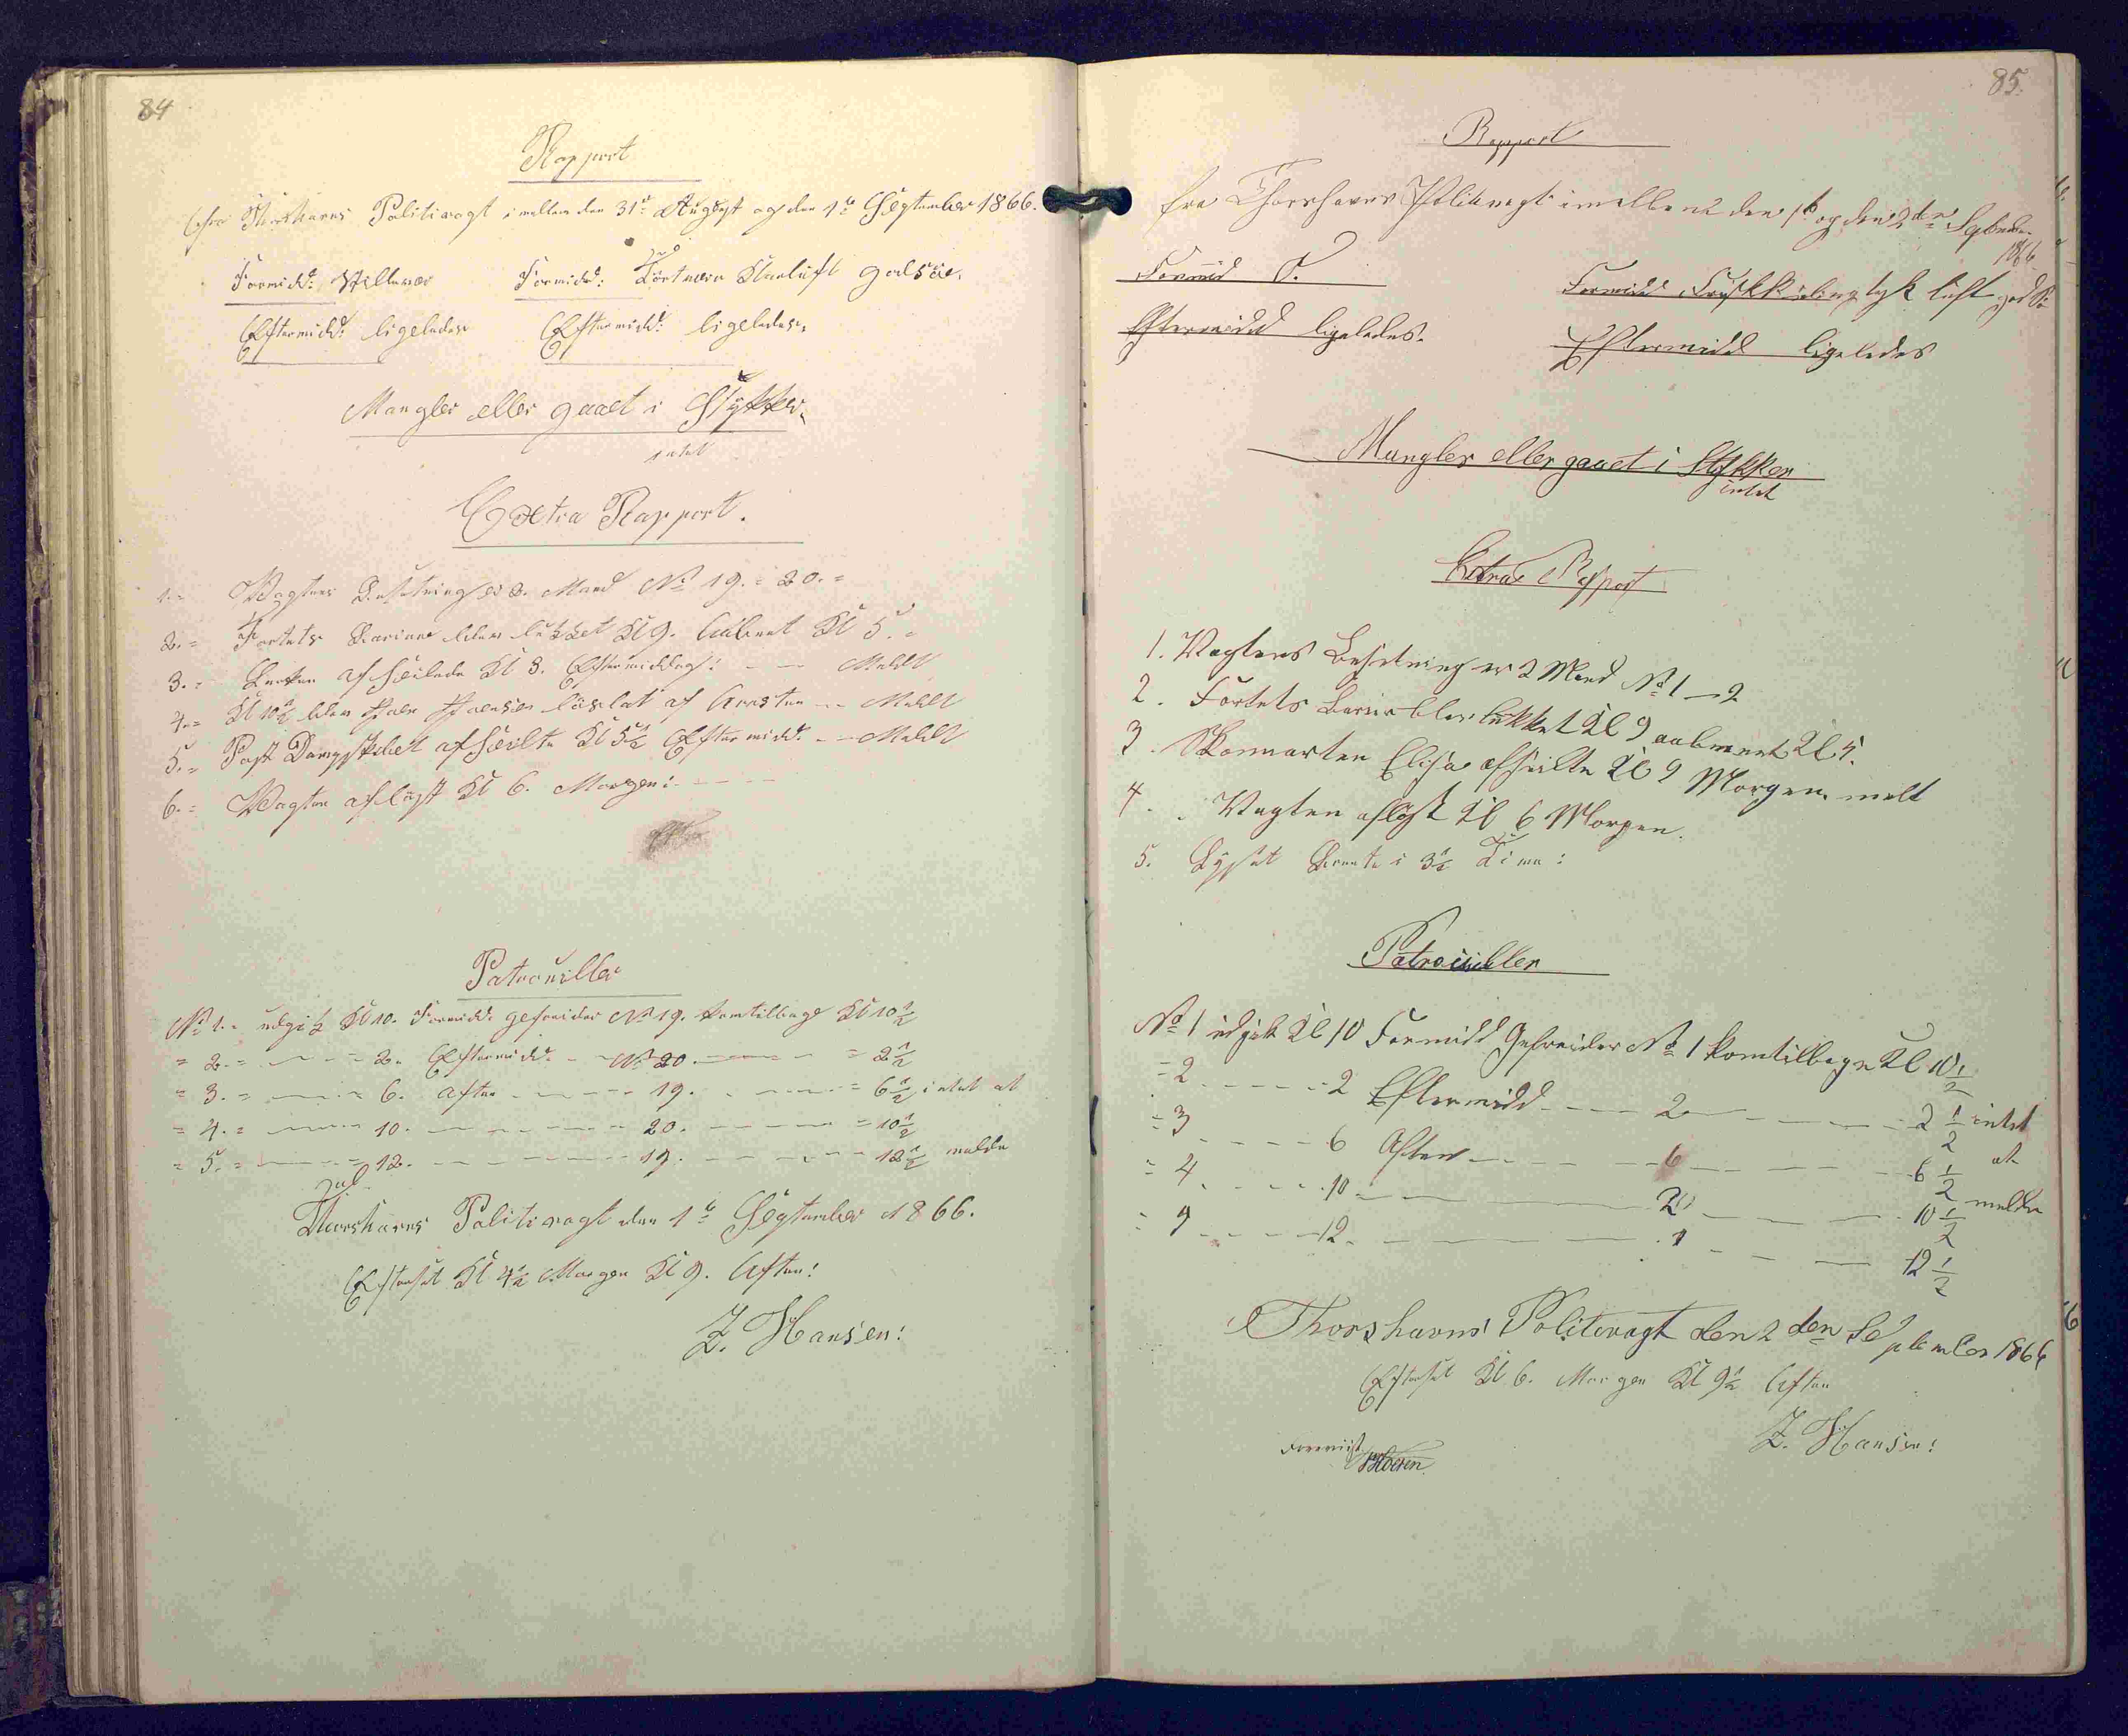 84
Rapport
fra Thorshavns Politivagt imellem den 31te August og den 1te September 1866.
Formidd: Stillevær Formidd: Tört veir Klarluft god Söe.
Eftermidd: ligeledes Eftermidd: ligeledes.
Mangler eller gaaet i Stÿkker.
intet
Extra Rapport.
1.= Vagtens Besetning er 2. Mand No 19. = 20. =
2.= Fortets Bariere blev lükket Kl 9. Aabnet Kl 5. =
3.= afseilede Kl 3. Eftermiddag: - - Meldt
4.= Kl 10½ blev löslat af Aresten - - Meldt
5.= Post Dampskibet afseilte Kl 5½ Eftermidd: - - Meldt
6.= Vagten aflöst Kl 6. Morgen: - - - -
Patrouiller
No 1.= udgik Kl 10. Formidd: gefreider No 19. komtilbage Kl 10½
= 2. = - - = 2. Eftermidd: - - No 20. - - = 2½
= 3. = - - = 6. Aften - - - 19. - - = 6½ intet at
= 4. = - - 10. - - - - 20. - - = 10½
= 5. = - - = 12. - - - - 19. - - - 12½ melde
Thorshavns Politivagt den 1te September 1866.
Efterset Kl 4½ Morgen Kl 9. Aften:
Z. Hansen:
85.
Rapport
fra Thorshavns Politivagt imellem den 1te og den 2den Septbr.
1866
Formid S. Formidd Frisk Kuling tyk luft god Sö
Eftermidd ligeledes. Eftermidd ligeledes
Mangler eller gaaet i Stykker
intet
Extra Rapport
1. Vagtens Besetning er 2 Mand No 1 - 2
2. Fortets Barier blev lükket Kl 9 aabnet Kl 5.
3. Skonnerten Elisa afseilte Kl 9 Morgen. melt
4. Vagten aflöst Kl 6 Morgen.
5. Lyset Brente i 3½ Time:
Patrouiller
No 1 udgik Kl 10 Formidd Gefreider No 1 komtilbage Kl 10½
= 2 - - - - 2 Eftermidd - - - 2 - - - 2½ intet
= 3 - - - - 6 Aften - - - 6 - - - 6½ at
= 4 - - - - 10 - - - 20 - - - 10½ melde
= 9 - - - - 12 - - - 1 - - - 12½
Thorshavns Politivagt den 2den September 1866
Efterset Kl 6. Morgen Kl 9½ Aften
Z. Hansen:
Forevist